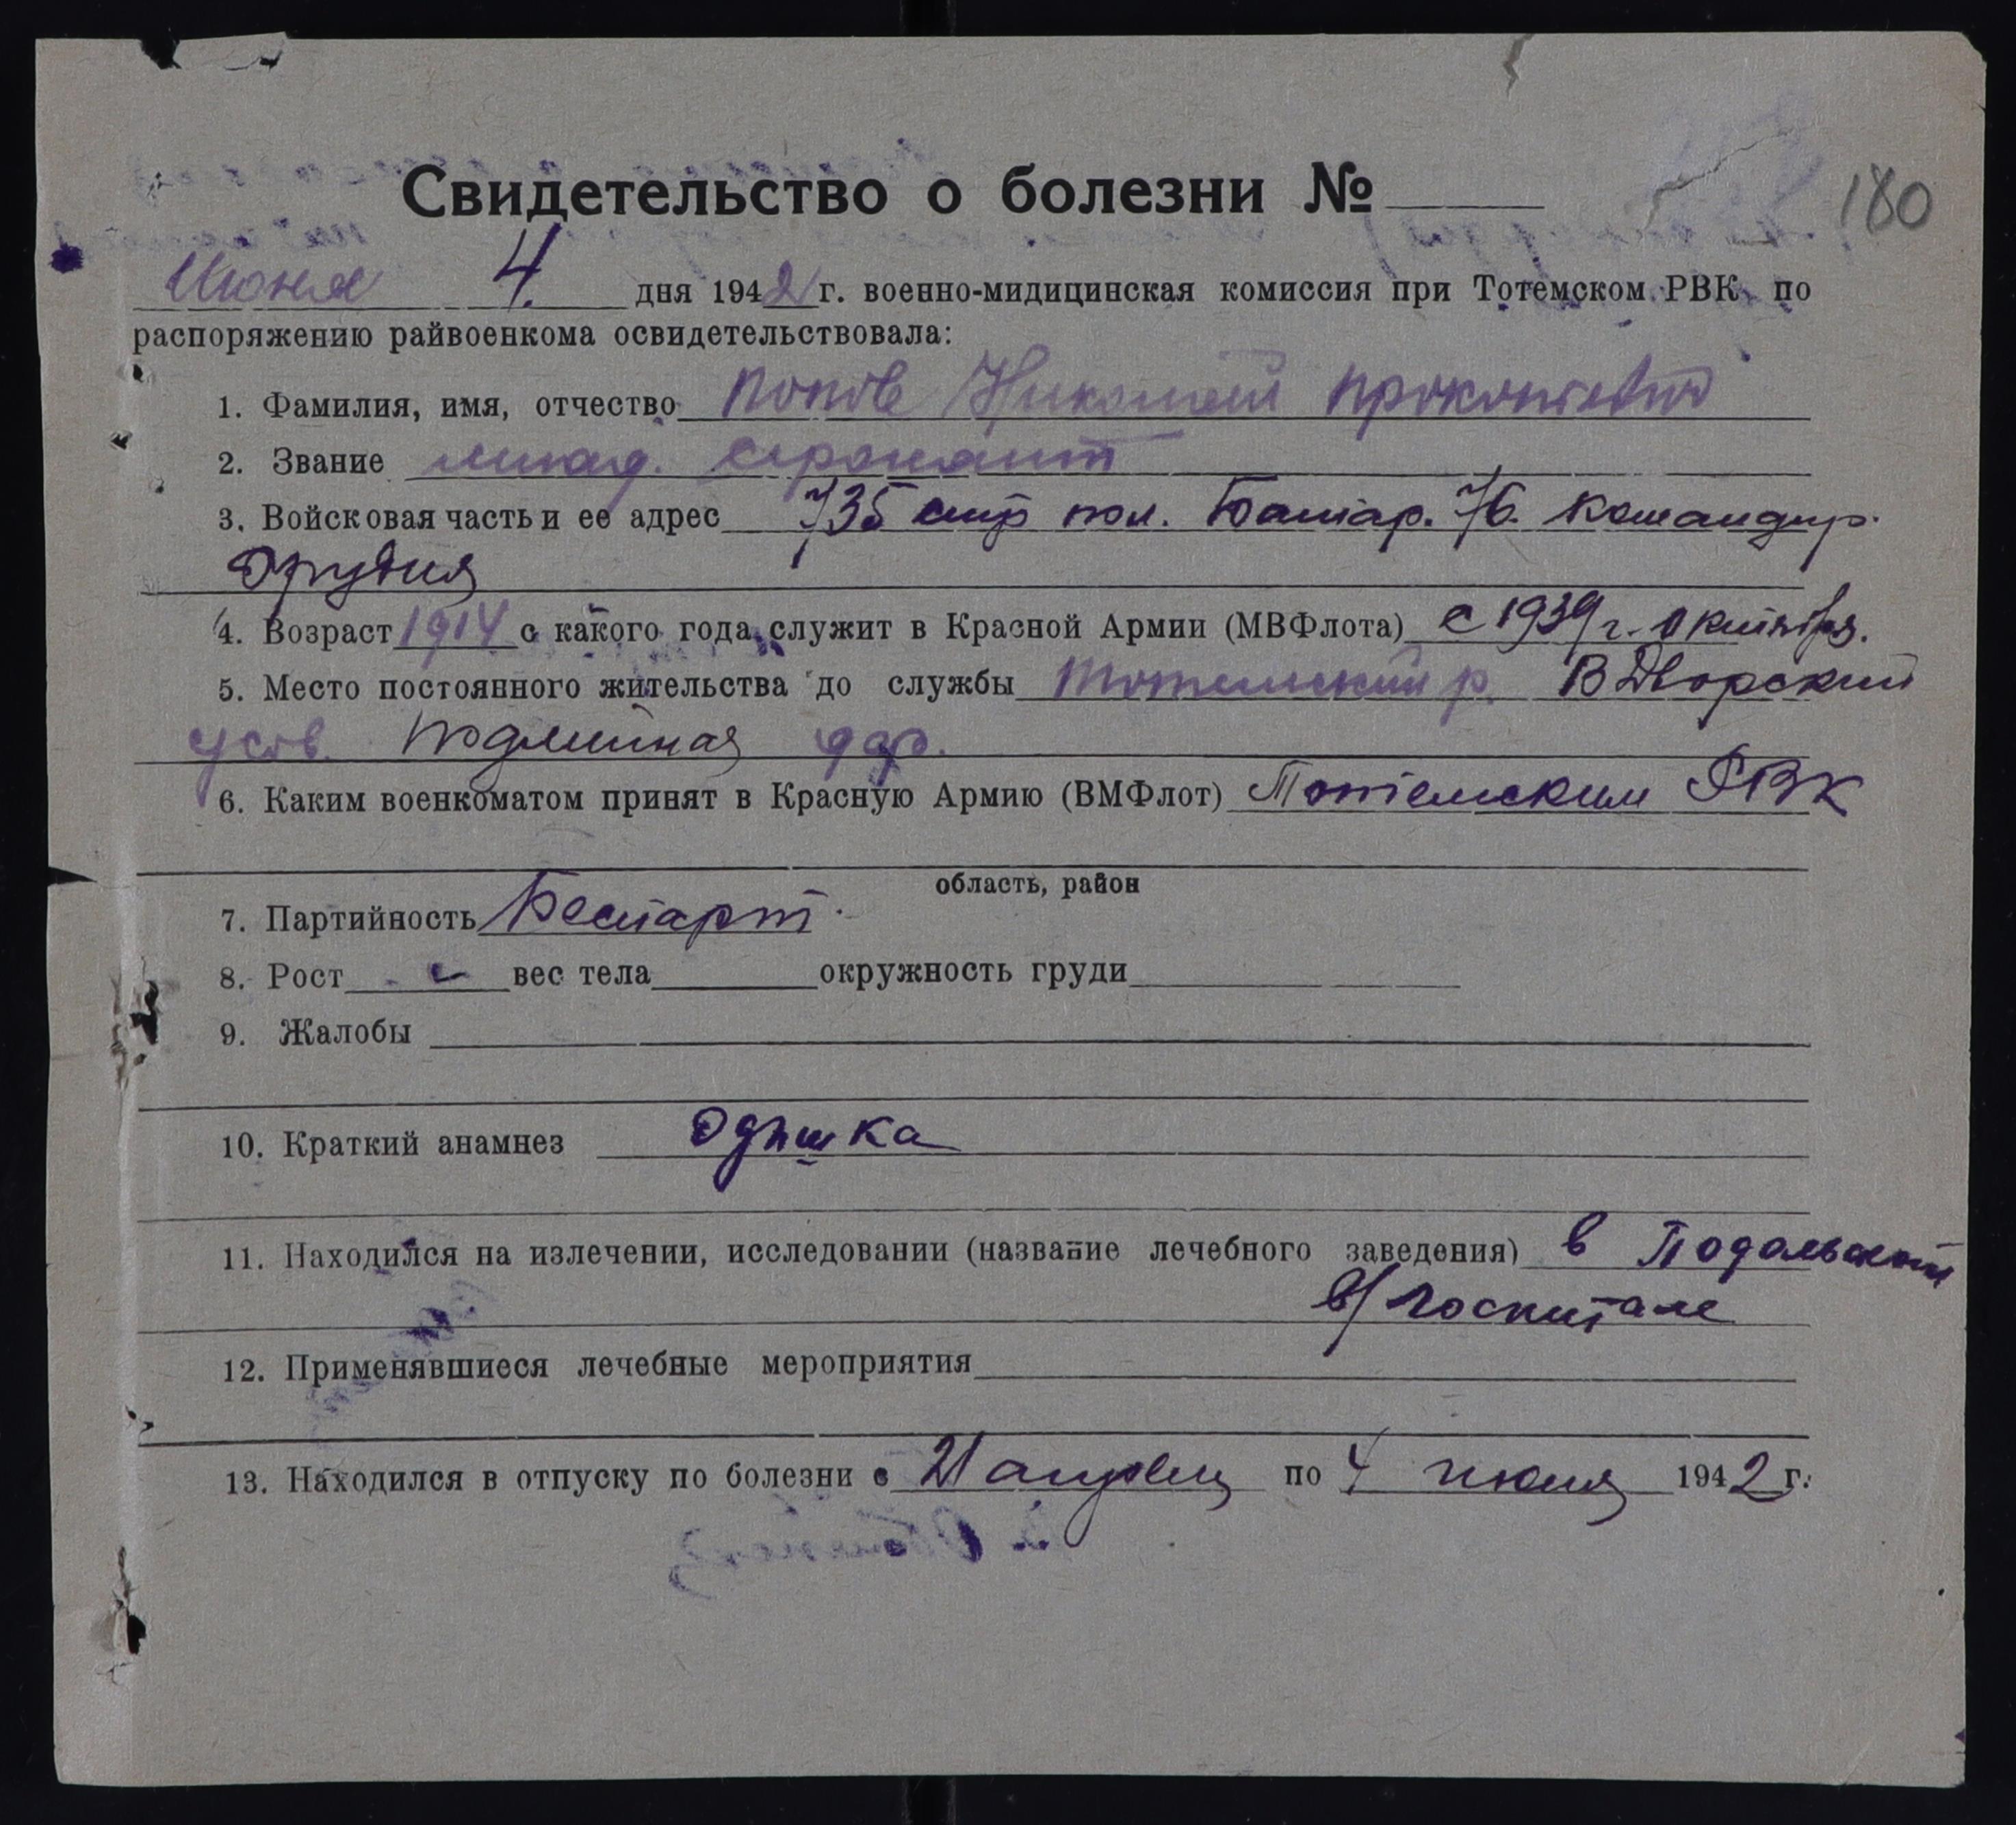 Свидетельство о болезни № ____
180
Июня 4. дня 1942 г. военно-мидицинская комиссия при Тотемском РВК по
распоряжению райвоенкома освидетельствовала:
1. Фамилия, имя, отчество Попов Николай Прокопьевич
2. Звание млад. сержант
3. Войсковая часть и ее адрес 735 стр пол. Батар. 76. командир.
Орудия
4. Возраст 1914 с какого года служит в Красной Армии (МВФлота) с 1939 г. Октября.
5. Место постоянного жительства до службы Тотемский р. В Дворский
с/сов. дер.
6. Каким военкоматом принят в Красную Армию (ВМФлот) Тотемским РВК
область, район
7. Партийность Беспарт.
8. Рост вес тела окружность груди
9. Жалобы
10. Краткий анамнез Одышка
11. Находился на излечении, исследовании (название лечебного заведения) в Подольском
в/госпитале
12. Применявшиеся лечебные мероприятия
13. Находился в отпуску по болезни с 21 апреля по 4 июня 1942 г.